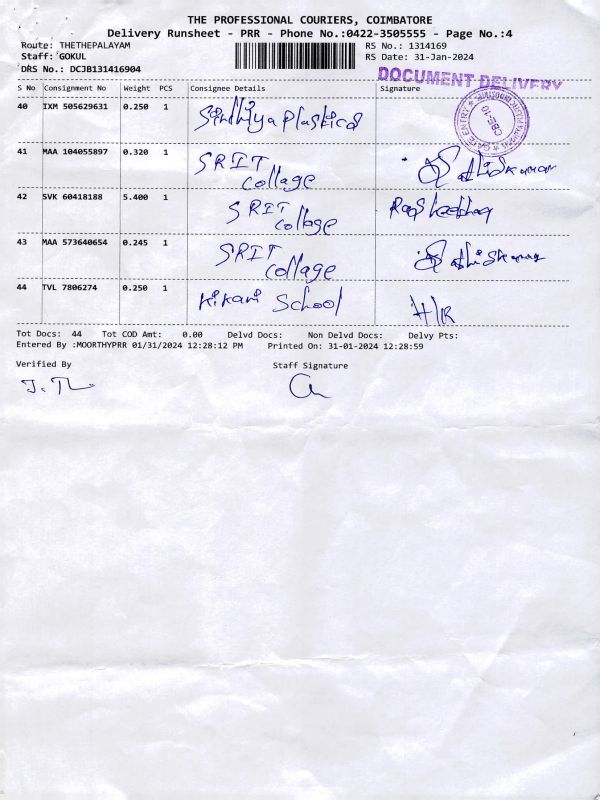 THE PROFESSIONAL COURIERS, COIMBATORE
Delivery Runsheet - PRR - Phone No.:0422-3505555 - Page No.:4
Route: THETHEPALAYAM RS No.: 1314169
Staff: GOKUL RS Date: 31-Jan-2024
DRS No.: DCJB131416904
DOCUMENT DELIVERY
S No Consignment No Weight PCS Consignee Details Signature
40 IXM 505629631 0.250 1 Sindhiya Plastics
GATE ENTRY
CBE-10
41 MAA 104055897 0.320 1 SRIT collage Sathiskumar
42 SVK 60418188 5.400 1 SRIT collage
43 MAA 573640654 0.245 1 SRIT collage
44 TVL 7806274 0.250 1 Kikani School
Tot Docs: 44 Tot COD Amt: 0.00 Delvd Docs: Non Delvd Docs: Delvy Pts:
Entered By :MOORTHYPRR 01/31/2024 12:28:12 PM Printed On: 31-01-2024 12:28:59
Verified By Staff Signature